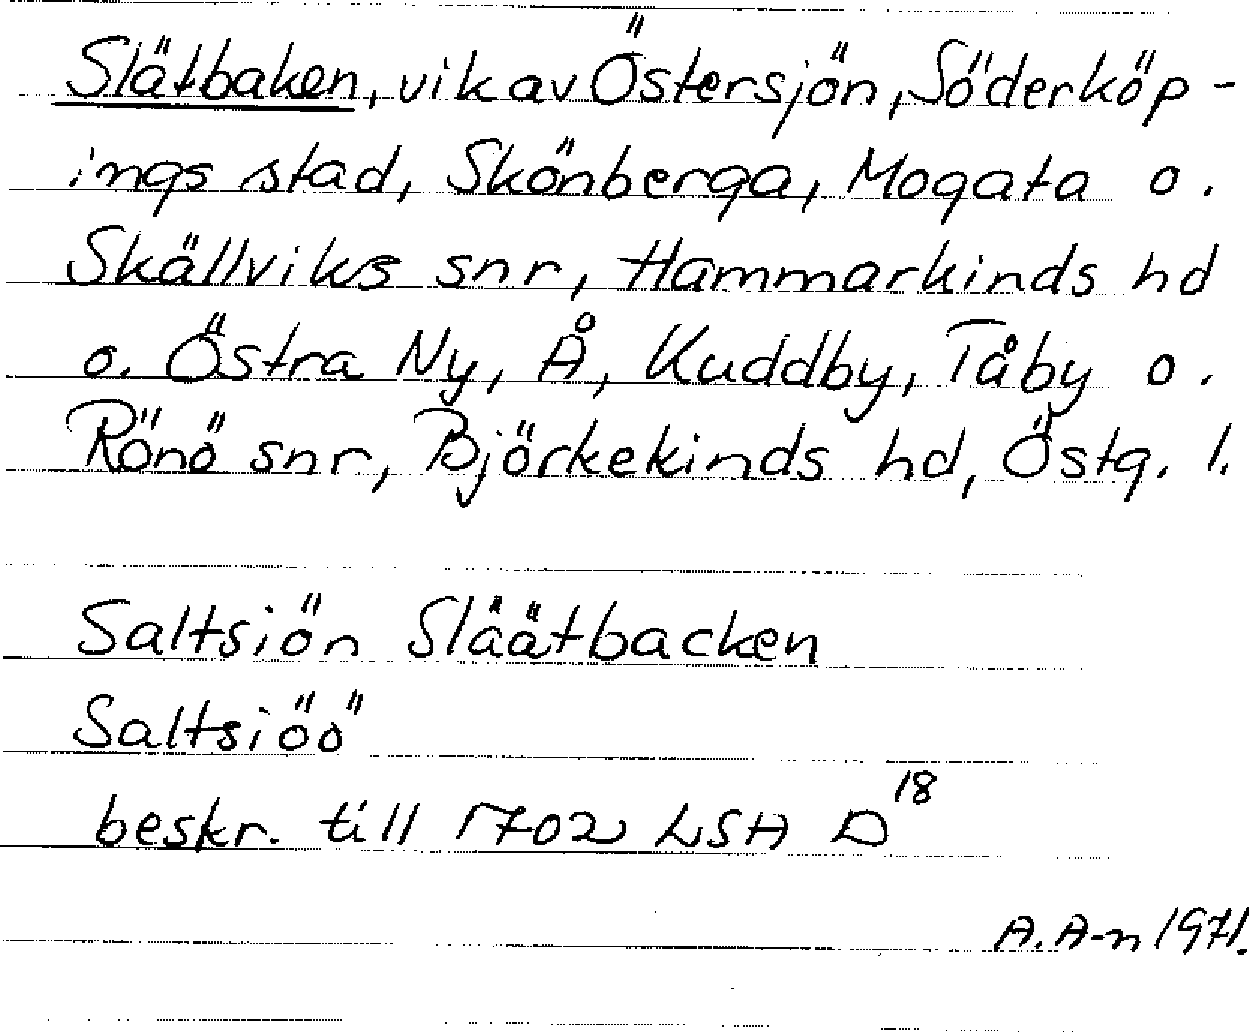 Slätbaken, vik av Östersjön, Söderköp-
ings stad, Skönberga, Mogata o.
Skällviks snr, Hammarkinds hd
o. Östra Ny, Å, Kuddby, Tåby o.
Rönö snr, Björkekinds hd, Östg. l.
Saltsiön Släätbacken
Saltsiöö
beskr. till 1702 LSA D18
A. A-n 1971.